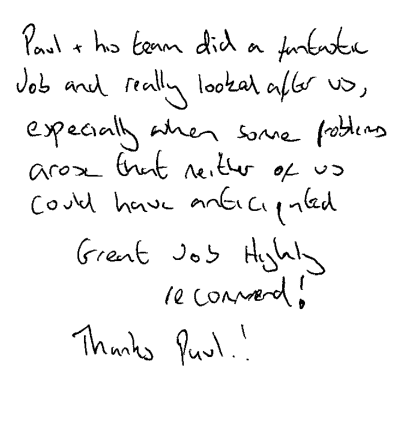 Paul + his team did a fantastic
Job and really looked after us,
especially when some problems
arose that neither of us
could have anticipated
Great Job Highly
recommend!
Thanks Paul.!